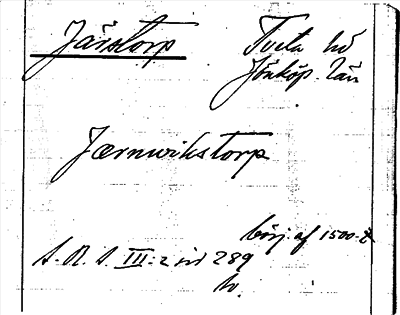 Järstorp
Tveta hd
Jönköp. län
Jærnwikstorp
börj. af 1500-t.
S. R. S. III:2 sid 289